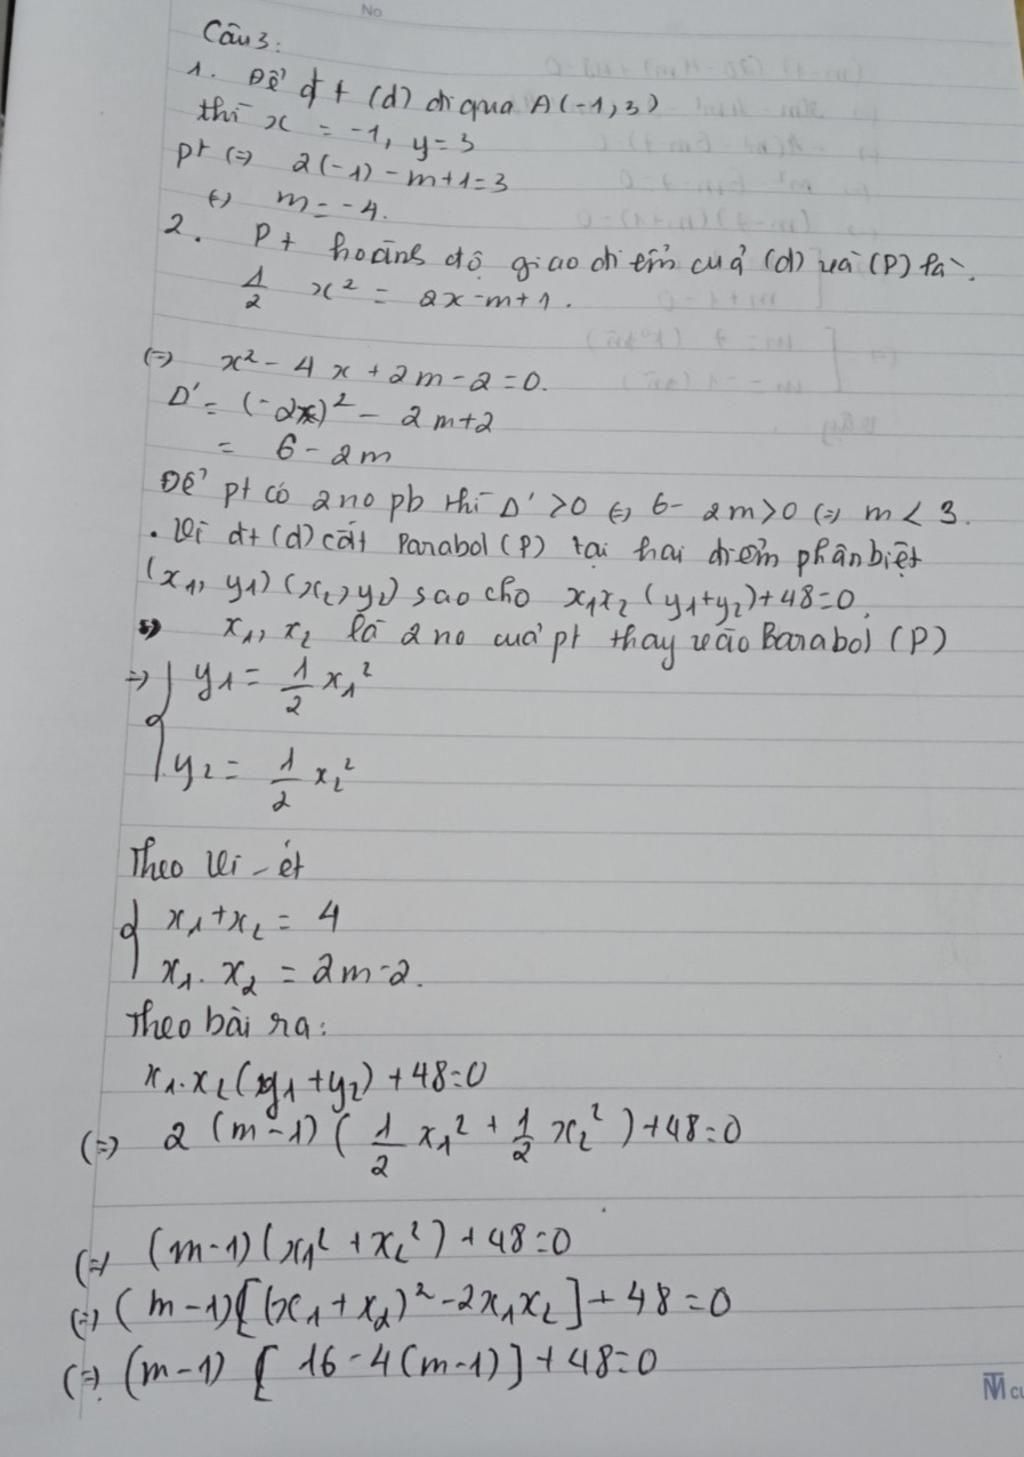 No
Câu 3:
1. Để đt (d) đi qua A(-1,3)
thì x = -1, y = 3
pt (=) 2(-1) - m+1=3
(=) m = -4.
2. Pt hoành độ giao điểm của (d) và (P) là:
1/2 x² = 2x-m+1.
(=) x² - 4x + 2m - 2 = 0.
Δ' = (-2)² - 2m+2
= 6 - 2m
Để pt có 2 no pb thì Δ' >0 (=) 6- 2m>0 (=) m < 3.
. Vì đt (d) cắt Parabol (P) tại hai điểm phân biệt
(x₁, y₁) (x₂, y₂) sao cho x₁x₂ (y₁+y₂)+48=0.
=> x₁, x₂ là 2 no của pt thay vào Barabol (P)
=> { y₁ = 1/2 x₁²
y₂ = 1/2 x₂²
Theo Vi-ét
{ x₁+x₂ = 4
x₁. x₂ = 2m-2.
Theo bài ra:
x₁.x₂(y₁+y₂) +48=0
(=) 2 (m-1) ( 1/2 x₁² + 1/2 x₂² ) +48=0
(=) (m-1)(x₁² + x₂²) + 48=0
(=) (m-1)[(x₁+x₂)² - 2x₁x₂] + 48 = 0
(=) (m-1) [ 16 - 4(m-1)] + 48=0